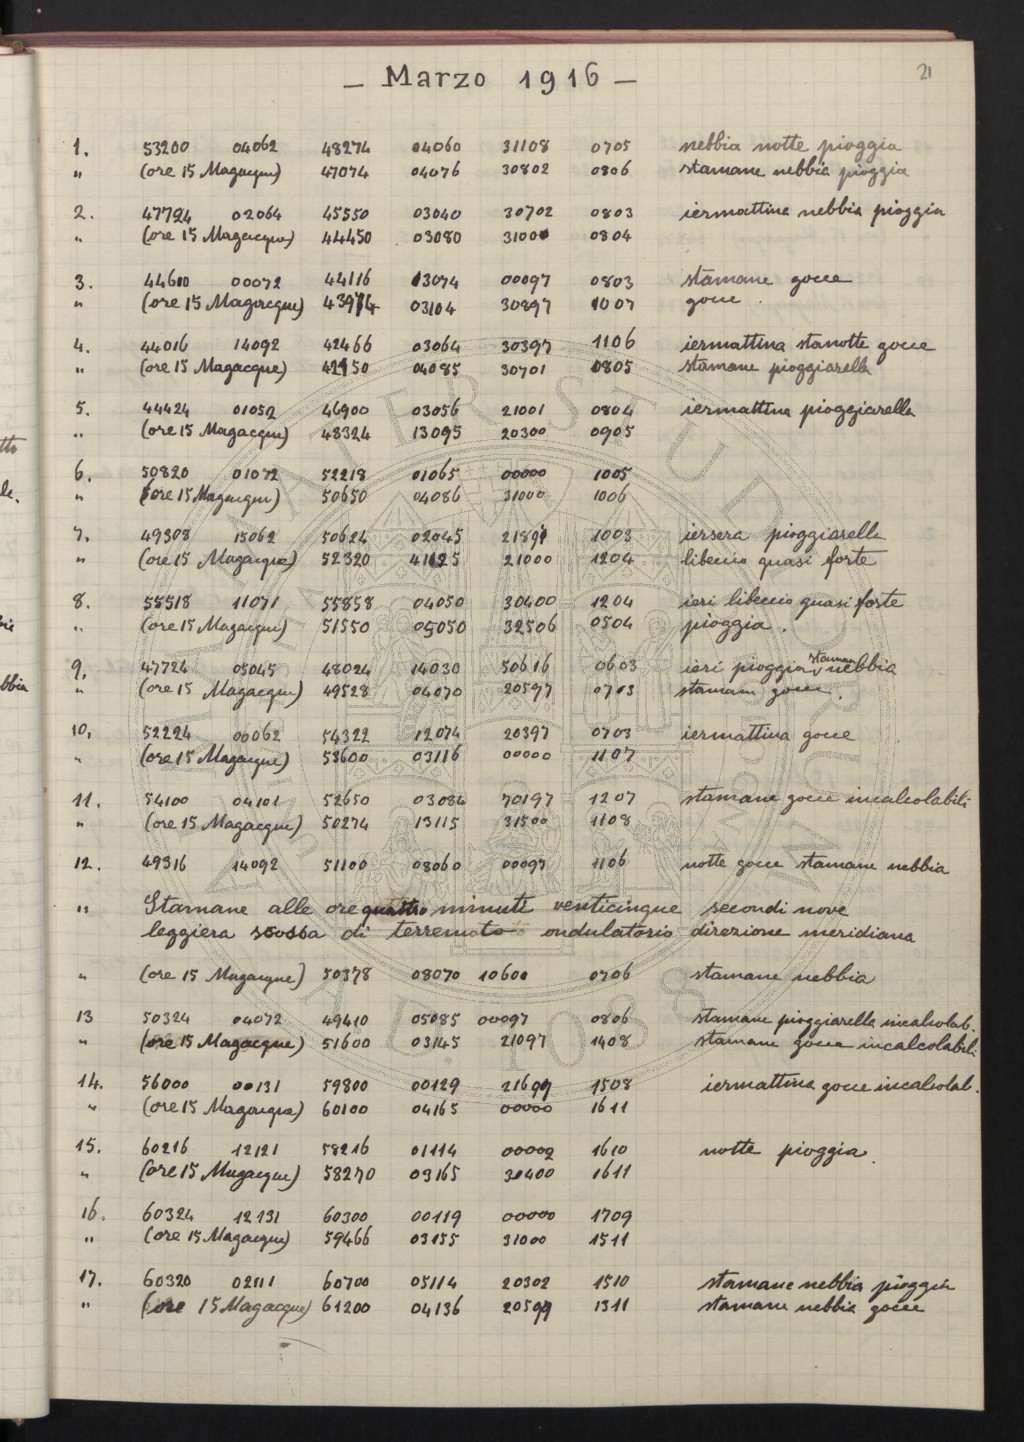 21
— Marzo 1916 —
1. 53200 04062 48274 04060 31108 0705 nebbia notte pioggia
" (ore 15 Magacque) 47074 04076 30802 0806 stamane nebbia pioggia
2. 47724 02064 45550 03040 30702 0803 iermattina nebbia pioggia
" (ore 15 Magacque) 44450 03080 31000 0804
3. 44600 00072 44116 03074 00097 0803 stamane gocce
" (ore 15 Magacque) 03104 30897 1007 gocce.
4. 44016 14092 42466 03064 30397 1106 iermattina stanotte gocce
" (ore 15 Magacque) 04085 30701 0805 stamane pioggiarella
5. 44424 01052 46900 03056 21001 0804 iermattina pioggiarella
" (ore 15 Magacque) 48324 13095 20300 0905
6. 50820 01072 52218 01065 00000 1005
" (ore 15 Magacque) 50650 04086 31000 1006
7. 49308 15062 50624 02045 1003 iersera pioggiarella
" (ore 15 Magacque) 52320 41125 21000 1204 libeccio quasi forte
8. 55518 11071 55858 04050 30400 1204 ieri libeccio quasi forte
" (ore 15 Magacque) 51550 05050 32506 0504 pioggia.
9. 47724 05045 48024 14030 50616 0603 ieri pioggia stamane nebbia
" (ore 15 Magacque) 49528 04070 20597 0703 stamane gocce.
10. 52224 00062 54322 12074 20397 0703 iermattina gocce
" (ore 15 Magacque) 53600 03116 00000 1107
11. 54100 04101 52650 03084 70197 1207 stamane gocce incalcolabili
" (ore 15 Magacque) 50274 13115 31500 1108
12. 49316 14092 51100 08060 00097 1106 notte gocce stamane nebbia
" Stamane alle ore quattro minuti venticinque secondi nove
leggiera scossa di terremoto ondulatorio direzione meridiana
" (ore 15 Magacque) 50378 08070 10600 0706 stamane nebbia
13 50324 04072 49410 05085 00097 0806 stamane pioggiarella incalcolab.
" (ore 15 Magacque) 51600 03145 21097 1408 stamane gocce incalcolabili
14. 56000 00131 59800 00129 21699 1508 iermattina gocce incalcolab.
" (ore 15 Magacque) 60100 04165 00000 1611
15. 60216 12121 58216 01114 00002 1610 notte pioggia.
" (ore 15 Magacque) 58270 03165 30400 1611
16. 60324 12131 60300 00119 00000 1709
" (ore 15 Magacque) 59466 03155 31000 1511
17. 60320 02111 60700 05114 20302 1510 stamane nebbia pioggia
" (ore 15 Magacque) 61200 04136 20599 1311 stamane nebbia gocce
ALMA MATER STUDIORUM
A.D. 1088